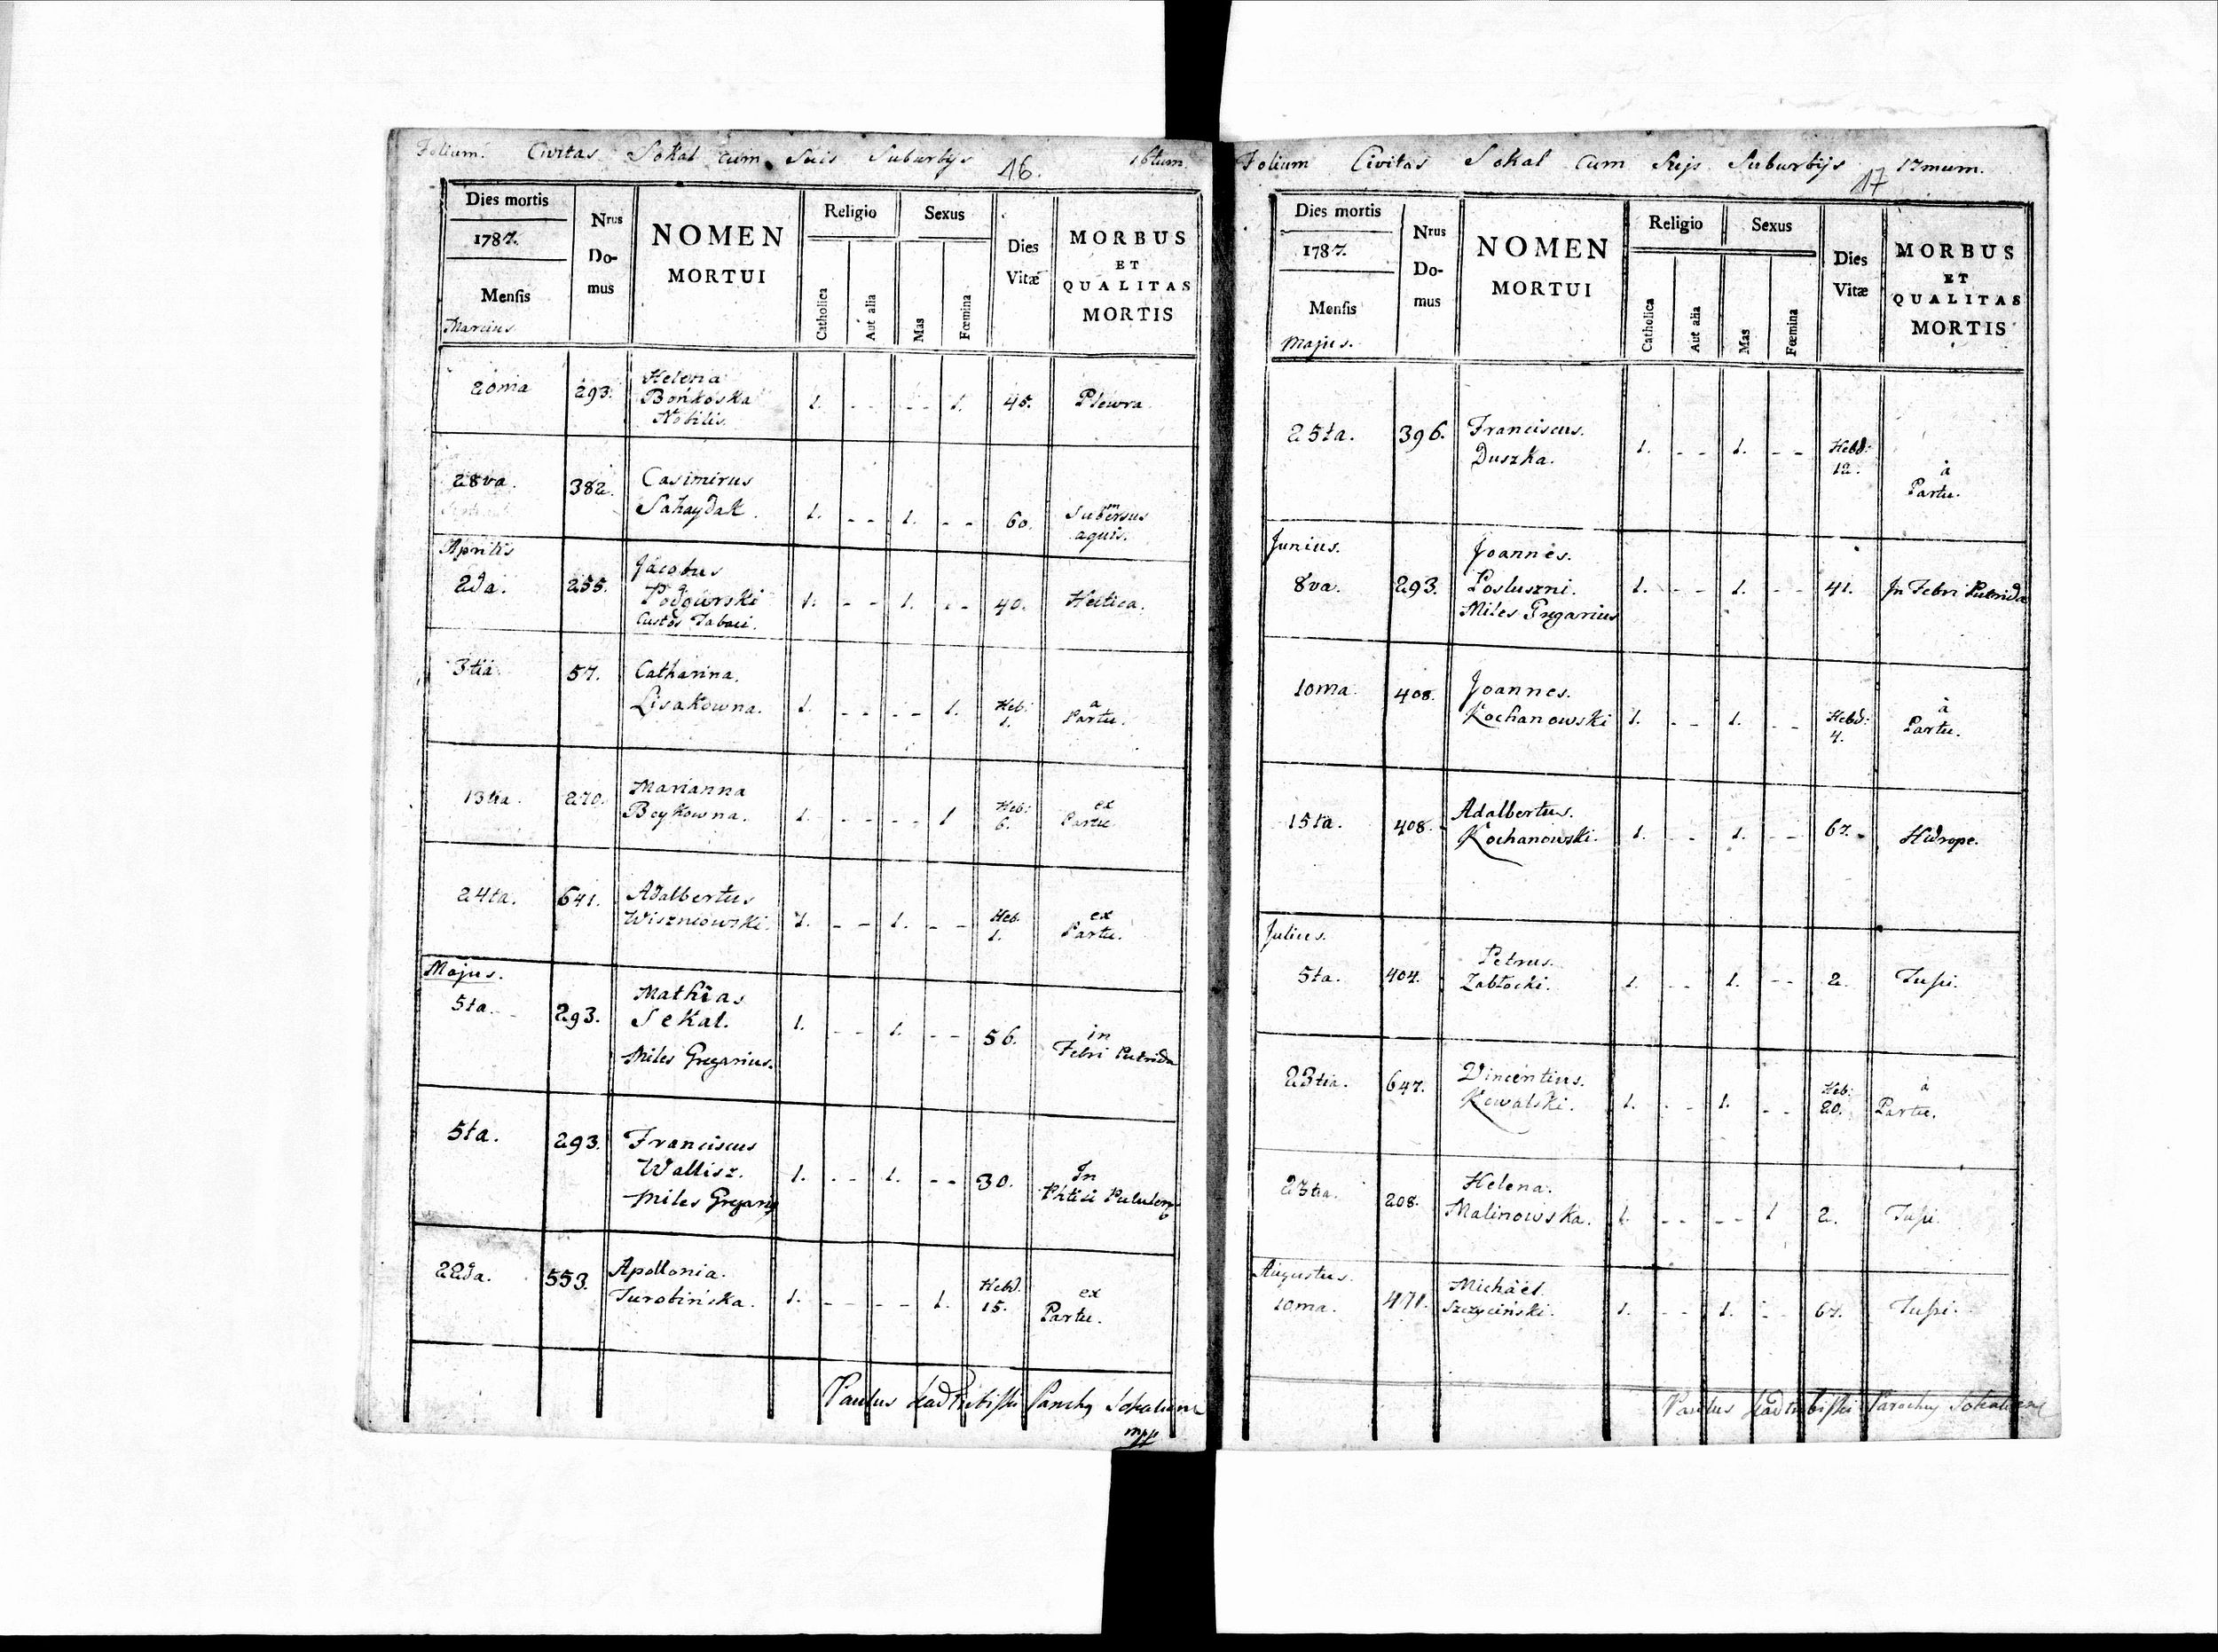 Folium. Civitas Sokal cum Suis Suburbijs 16. 16tum.
Dies mortis
1787.
Mensis
Marcius
Nrus
Do-
mus
NOMEN
MORTUI
Religio
Catholica
Aut alia
Sexus
Mas
Fœmina
Dies
Vitæ
MORBUS
ET
QUALITAS
MORTIS
20ma 293. Helena
Bońkoska
Nobilis. 1. - - - - 1. 45. Plewra
28va. 382. Casimirus
Sahaydak. 1. - - 1. - - 60. Submersus
aquis.
Aprilis
2da. 255. Jacobus
Podgurski
Custos Tabaci. 1. - - 1. - - 40. Hectica.
3tia 57. Catharina.
Lisakowna. 1. - - - - 1. Heb:
1. a
Partu.
13tia. 270. Marianna
Beykowna. 1. - - - - 1 Heb:
6. ex
Partu
24ta. 641. Adalbertus
Wiszniowski. 1. - - 1. - - Heb.
1. ex
Partu.
Majus.
5ta. 293. Mathias
Sekal.
Miles Gregarius. 1. - - 1. - - 56. in
Febri Putrida
5ta. 293. Franciscus
Wallisz.
Miles Gregari9 1. - - 1. - - 30. In
22da. 553. Apollonia.
Turobińska. 1. - - - - 1. Hebd.
15. ex
Partu.
Paulus Parochus
mpp
Folium Civitas Sokal cum Suijs Suburbijs 17 17mum.
Dies mortis
1787.
Mensis
Majus.
Nrus
Do-
mus
NOMEN
MORTUI
Religio
Catholica
Aut alia
Sexus
Mas
Fœmina
Dies
Vitæ
MORBUS
ET
QUALITAS
MORTIS
25ta. 396. Franciscus.
Duszka. 1. - - 1. - - Hebd:
12. à
Partu.
Junius.
8va. 293. Joannes.
Posluszni.
Miles Gregarius 1. - - 1. - - 41. Jn Febri Putrida
10ma 408. Joannes.
Kochanowski 1. - - 1. - - Hebd:
4. à
Partu.
15ta. 408. Adalbertus.
Kochanowski. 1. - - 1. - - 67. Hidrope.
Julius.
5ta. 404. Petrus.
Zabłocki. 1. - - 1. - - 2. Tussi.
23tia. 647. Vincentius.
Kowalski. 1. - - 1. - - Heb:
20. à
Partu.
23tia. 208. Helena.
Malinowska. 1. - - - - 1 2. Tussi.
Augustus.
10ma. 471. Michaël.
Szczyciński. 1. - - 1. - - 67. Tussi.
Paulus Parochus